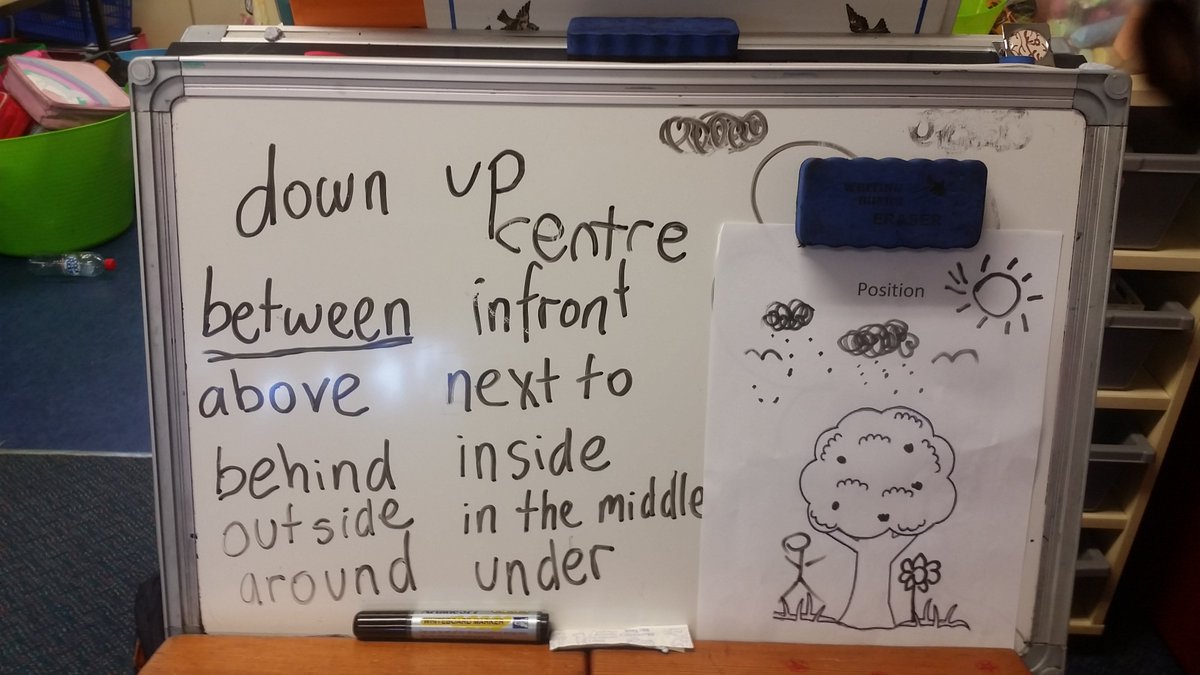 down up
centre
between infront
above next to
behind inside
outside in the middle
around under
ERASER
Position
WHITEBOARD MARKER